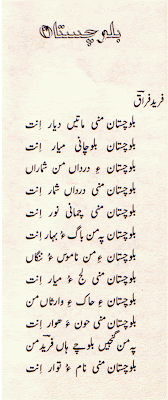 بلوچستان
فرید فراق
بلوچستان منی ماتیں دیار اِنت
بلوچستان بلوچانی میار اِنت
بلوچستان ءِ درداں من شماراں
بلوچستان منی درداں شمار اِنت
بلوچستان منی چمانی نور اِنت
بلوچستان پہ من باگ ءُ بہار اِنت
بلوچستان ءِ من ناموس ءُ ننگاں
بلوچستان منی لج ءُ میار اِنت
بلوچستان ءِ حاک ءِ وارثاں من
بلوچستان منی حون ءُ ھوار اِنت
پہ من گنجیں بلوچے ہاں فرید من
بلوچستان منی نام ءُ توار اِنت